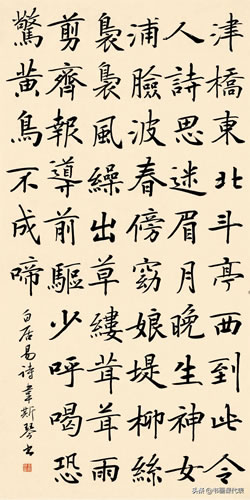 津橋東北斗亭西到此令
人詩思迷眉月晚生神女
浦臉波春傍窈娘堤柳絲
裊裊風繰出草縷茸茸雨
剪齊報導前驅少呼喝恐
驚黃鳥不成啼
白居易詩韋斯琴書
头条